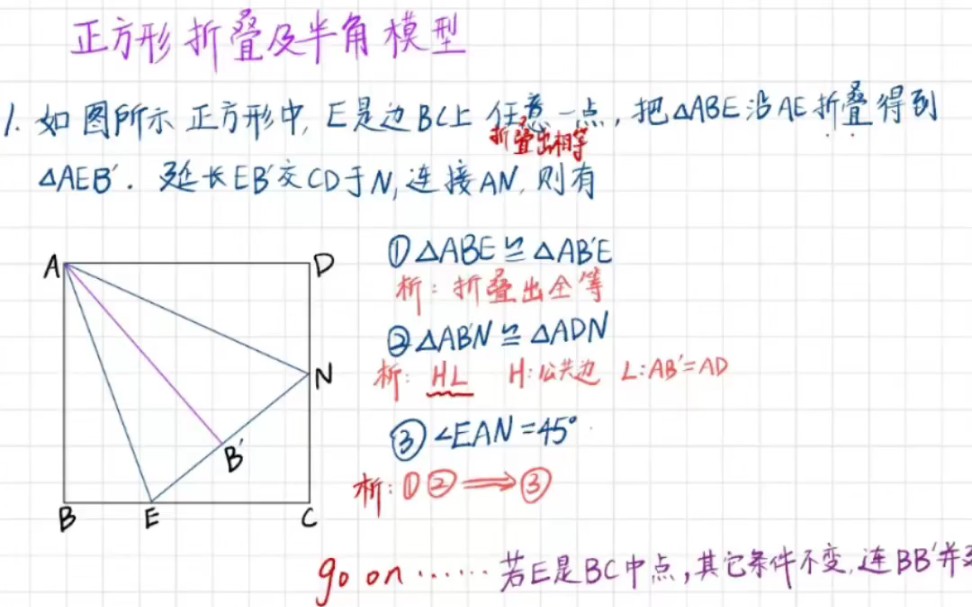 正方形折叠及半角模型
1. 如图所示 正方形中, E是边BC上 任意一点, 把△ABE沿AE折叠得到
折叠出相等
△AEB′. 延长EB′交CD于N, 连接AN, 则有
①△ABE≌△AB′E
析: 折叠出全等
②△AB′N≌△ADN
析: HL H:公共边 L:AB′=AD
③∠EAN=45°
析:①②⟹③
A
D
N
B′
B
E
C
go on ······ 若E是BC中点, 其它条件不变, 连BB′并